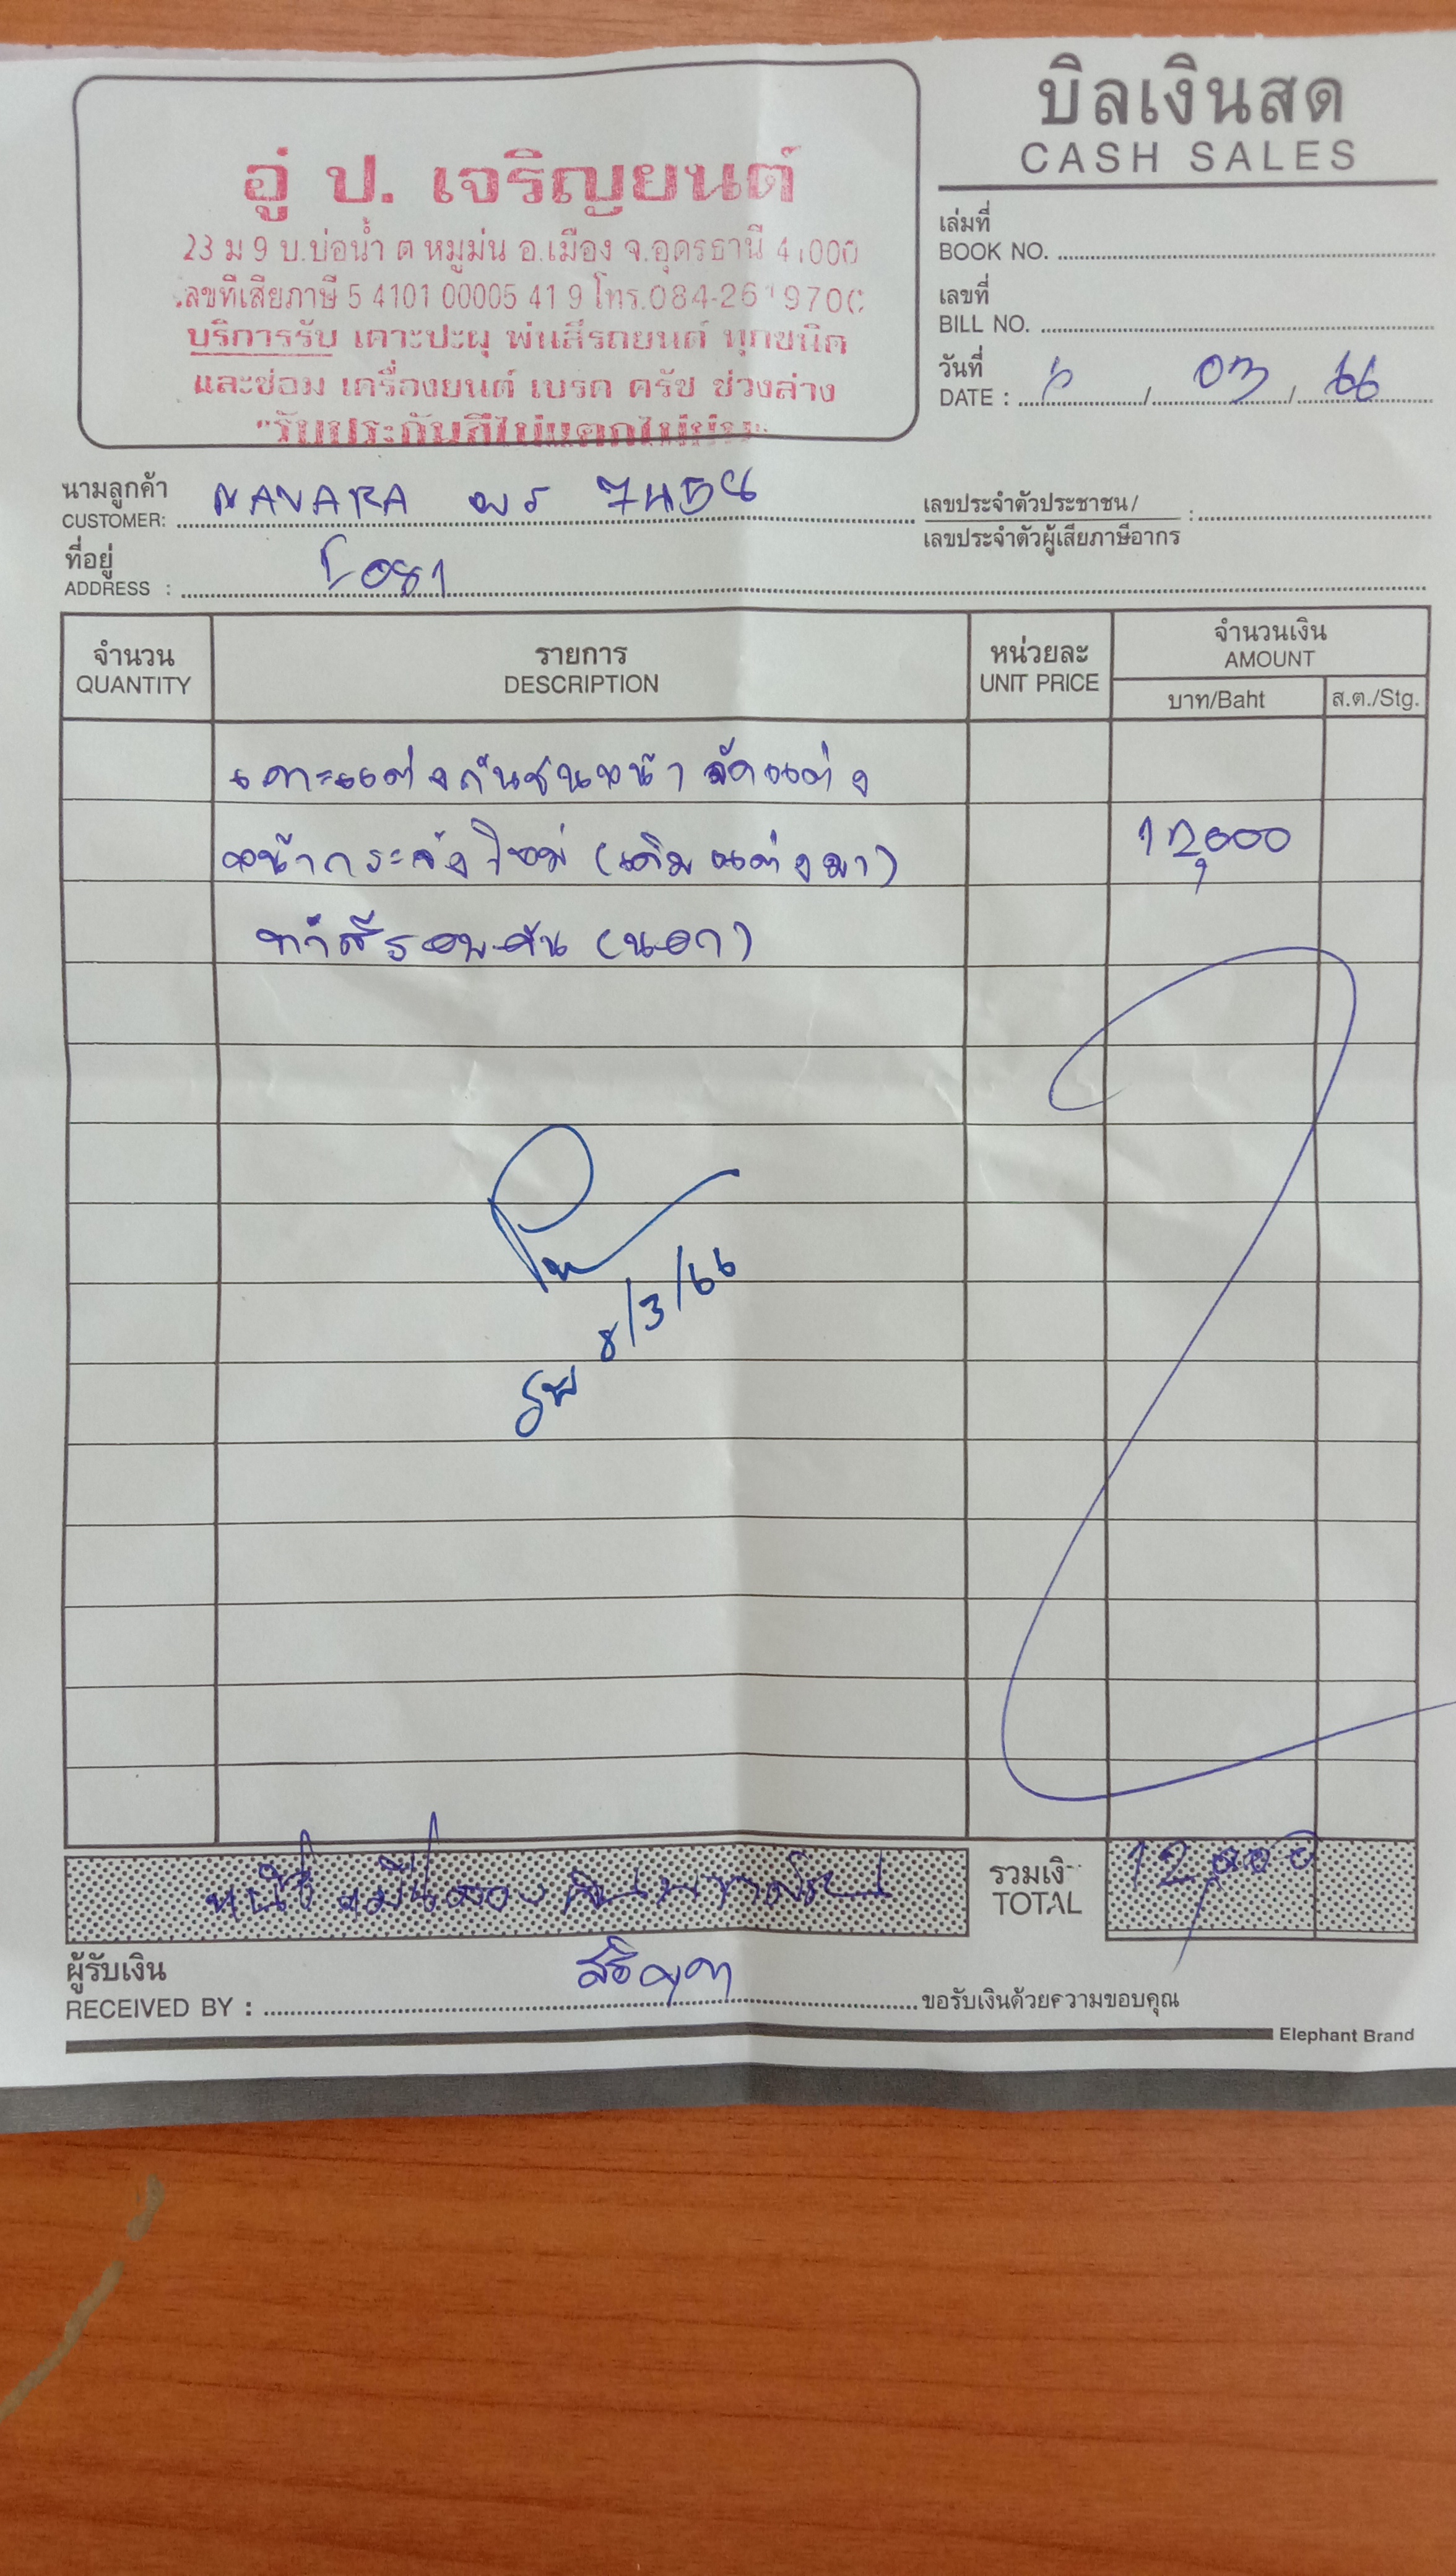 บิลเงินสด
CASH SALES
อู่ ป. เจริญยนต์
23 ม 9 บ.บ่อน้ำ ต หมูม่น อ.เมือง จ.อุดรธานี 41000
เลขที่เสียภาษี 5 4101 00005 41 9 โทร.084-261970
บริการรับ เคาะปะผุ พ่นสีรถยนต์ ทุกชนิด
และซ่อม เครื่องยนต์ เบรค ครัช ช่วงล่าง
"รับประกันสีไม่แตกไม่
เล่มที่
BOOK NO.
เลขที่
BILL NO.
วันที่
DATE : 6 / 03 / 66
นามลูกค้า
CUSTOMER: NAVARA 7458
เลขประจำตัวประชาชน/
เลขประจำตัวผู้เสียภาษีอากร :
ที่อยู่
ADDRESS : 081
จำนวน รายการ หน่วยละ จำนวนเงิน
QUANTITY DESCRIPTION UNIT PRICE AMOUNT
บาท/Baht ส.ต./Stg.
เคาะแต่งกันชนหน้า ดัดแต่ง
หน้ากระจังใหม่ (เดิมแต่งมา) 12,000
ทำสีรอบคัน (นอก)
8/3/66
หนึ่งหมื่นสองพันบาทถ้วน รวมเงิ
TOTAL 12,000
ผู้รับเงิน
RECEIVED BY : ขอรับเงินด้วยความขอบคุณ
Elephant Brand